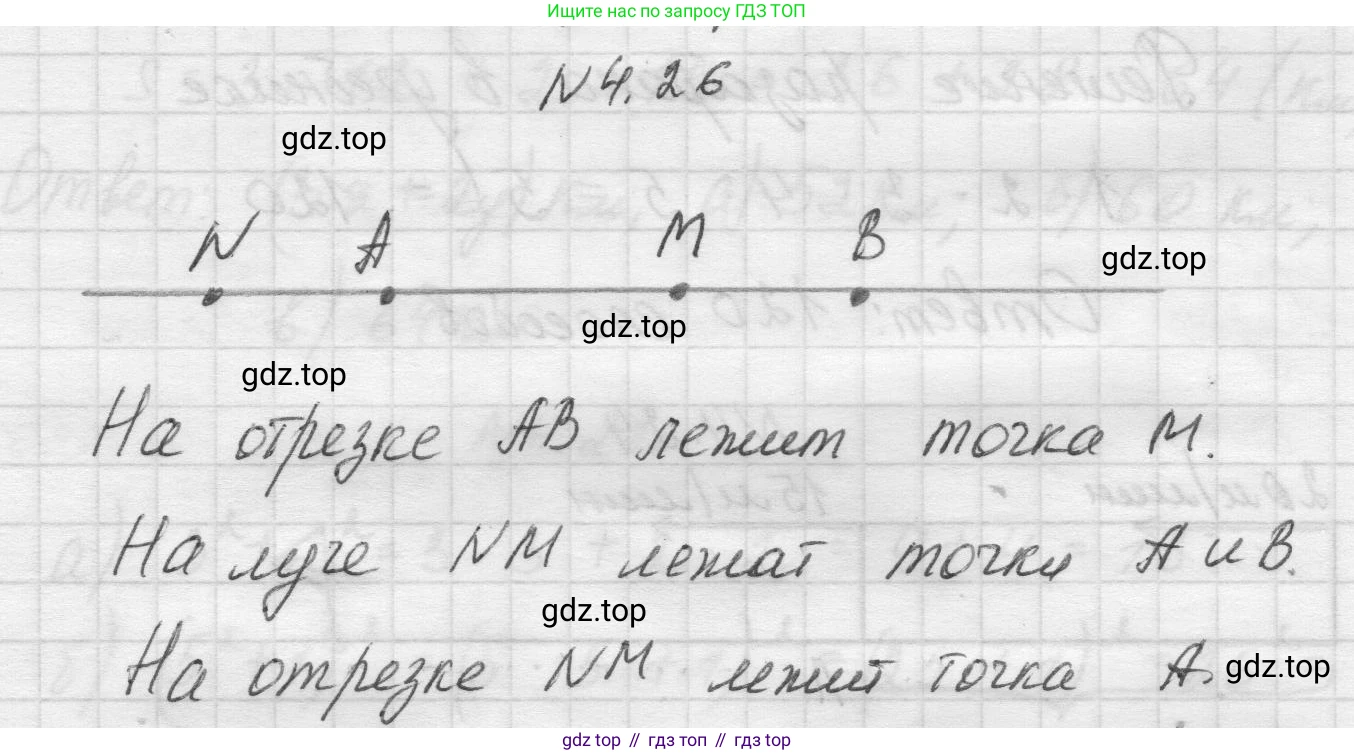 Ищите нас по запросу ГДЗ ТОП
N 4.26
gdz.top
N A M B
gdz.top
gdz.top
gdz.top
На отрезке AB лежит точка M.
На луче NM лежат точки A и B.
gdz.top
На отрезке NM лежит точка A.
gdz.top
gdz top // гдз топ // gdz top